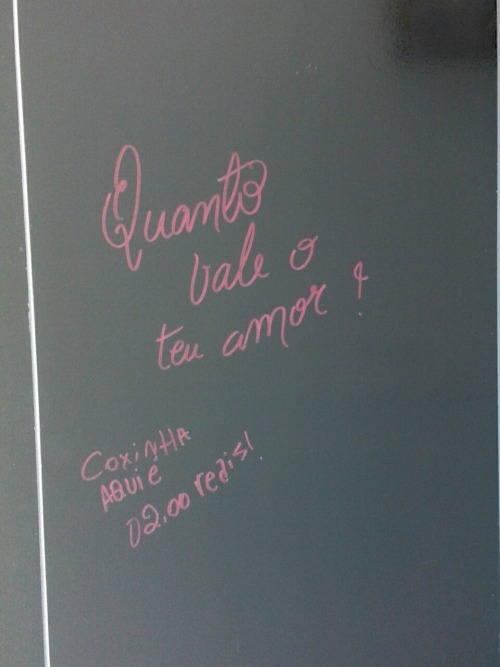 Quanto
vale o
teu amor?
COXINHA
AQUI é
02,00 redis!